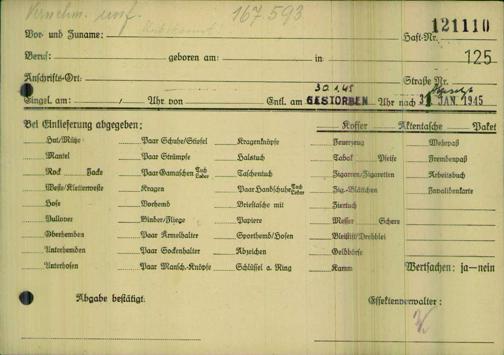 Vernehm. unf. 167593
Vor- und Zuname: Haft-Nr. 121110
Beruf: geboren am: in 125
Anschrifts-Ort: Straße Nr.
30.1.45
Eingel. am: / Uhr von Entl. am GESTORBEN Uhr nach 31. JAN. 1945
Bei Einlieferung abgegeben: Koffer Aktentasche Paket
Hut/Mütze Paar Schuhe/Stiefel Kragenknöpfe Feuerzeug Wehrpaß
Mantel Paar Strümpfe Halstuch Tabak Pfeife Fremdenpaß
Rock Jacke Paar Gamaschen Tuch Leder Taschentuch Zigarren/Zigaretten Arbeitsbuch
Weste/Kletterweste Kragen Paar Handschuhe Tuch Leder Zig.-Blättchen Invalidenkarte
Hose Vorhemd Brieftasche mit Ziertuch
Pullover Binder/Fliege Papiere Messer Schere
Oberhemden Paar Ärmelhalter Sporthemd/Hosen Bleistift/Drehblei
Unterhemden Paar Sockenhalter Abzeichen Geldbörse
Unterhosen Paar Mansch.-Knöpfe Schlüssel a. Ring Kamm Wertsachen: ja—nein
Abgabe bestätigt: Effektenverwalter: